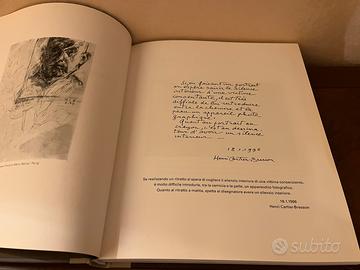 Si, en faisant un portrait
on espère saisir le silence
intérieur d'une victime
consentante, il est très
difficile de lui introduire
entre la chemise et la
peau un appareil photo
graphique.
Quant au portrait au
crayon, c'est au dessina
teur d'avoir un silence
intérieur
18.1.1996
Henri Cartier-Bresson
Se realizzando un ritratto si spera di cogliere il silenzio interiore di una vittima consenziente,
è molto difficile introdurle, tra la camicia e la pelle, un apparecchio fotografico.
Quanto al ritratto a matita, spetta al disegnatore avere un silenzio interiore.
18.1.1996
Henri Cartier-Bresson
subito